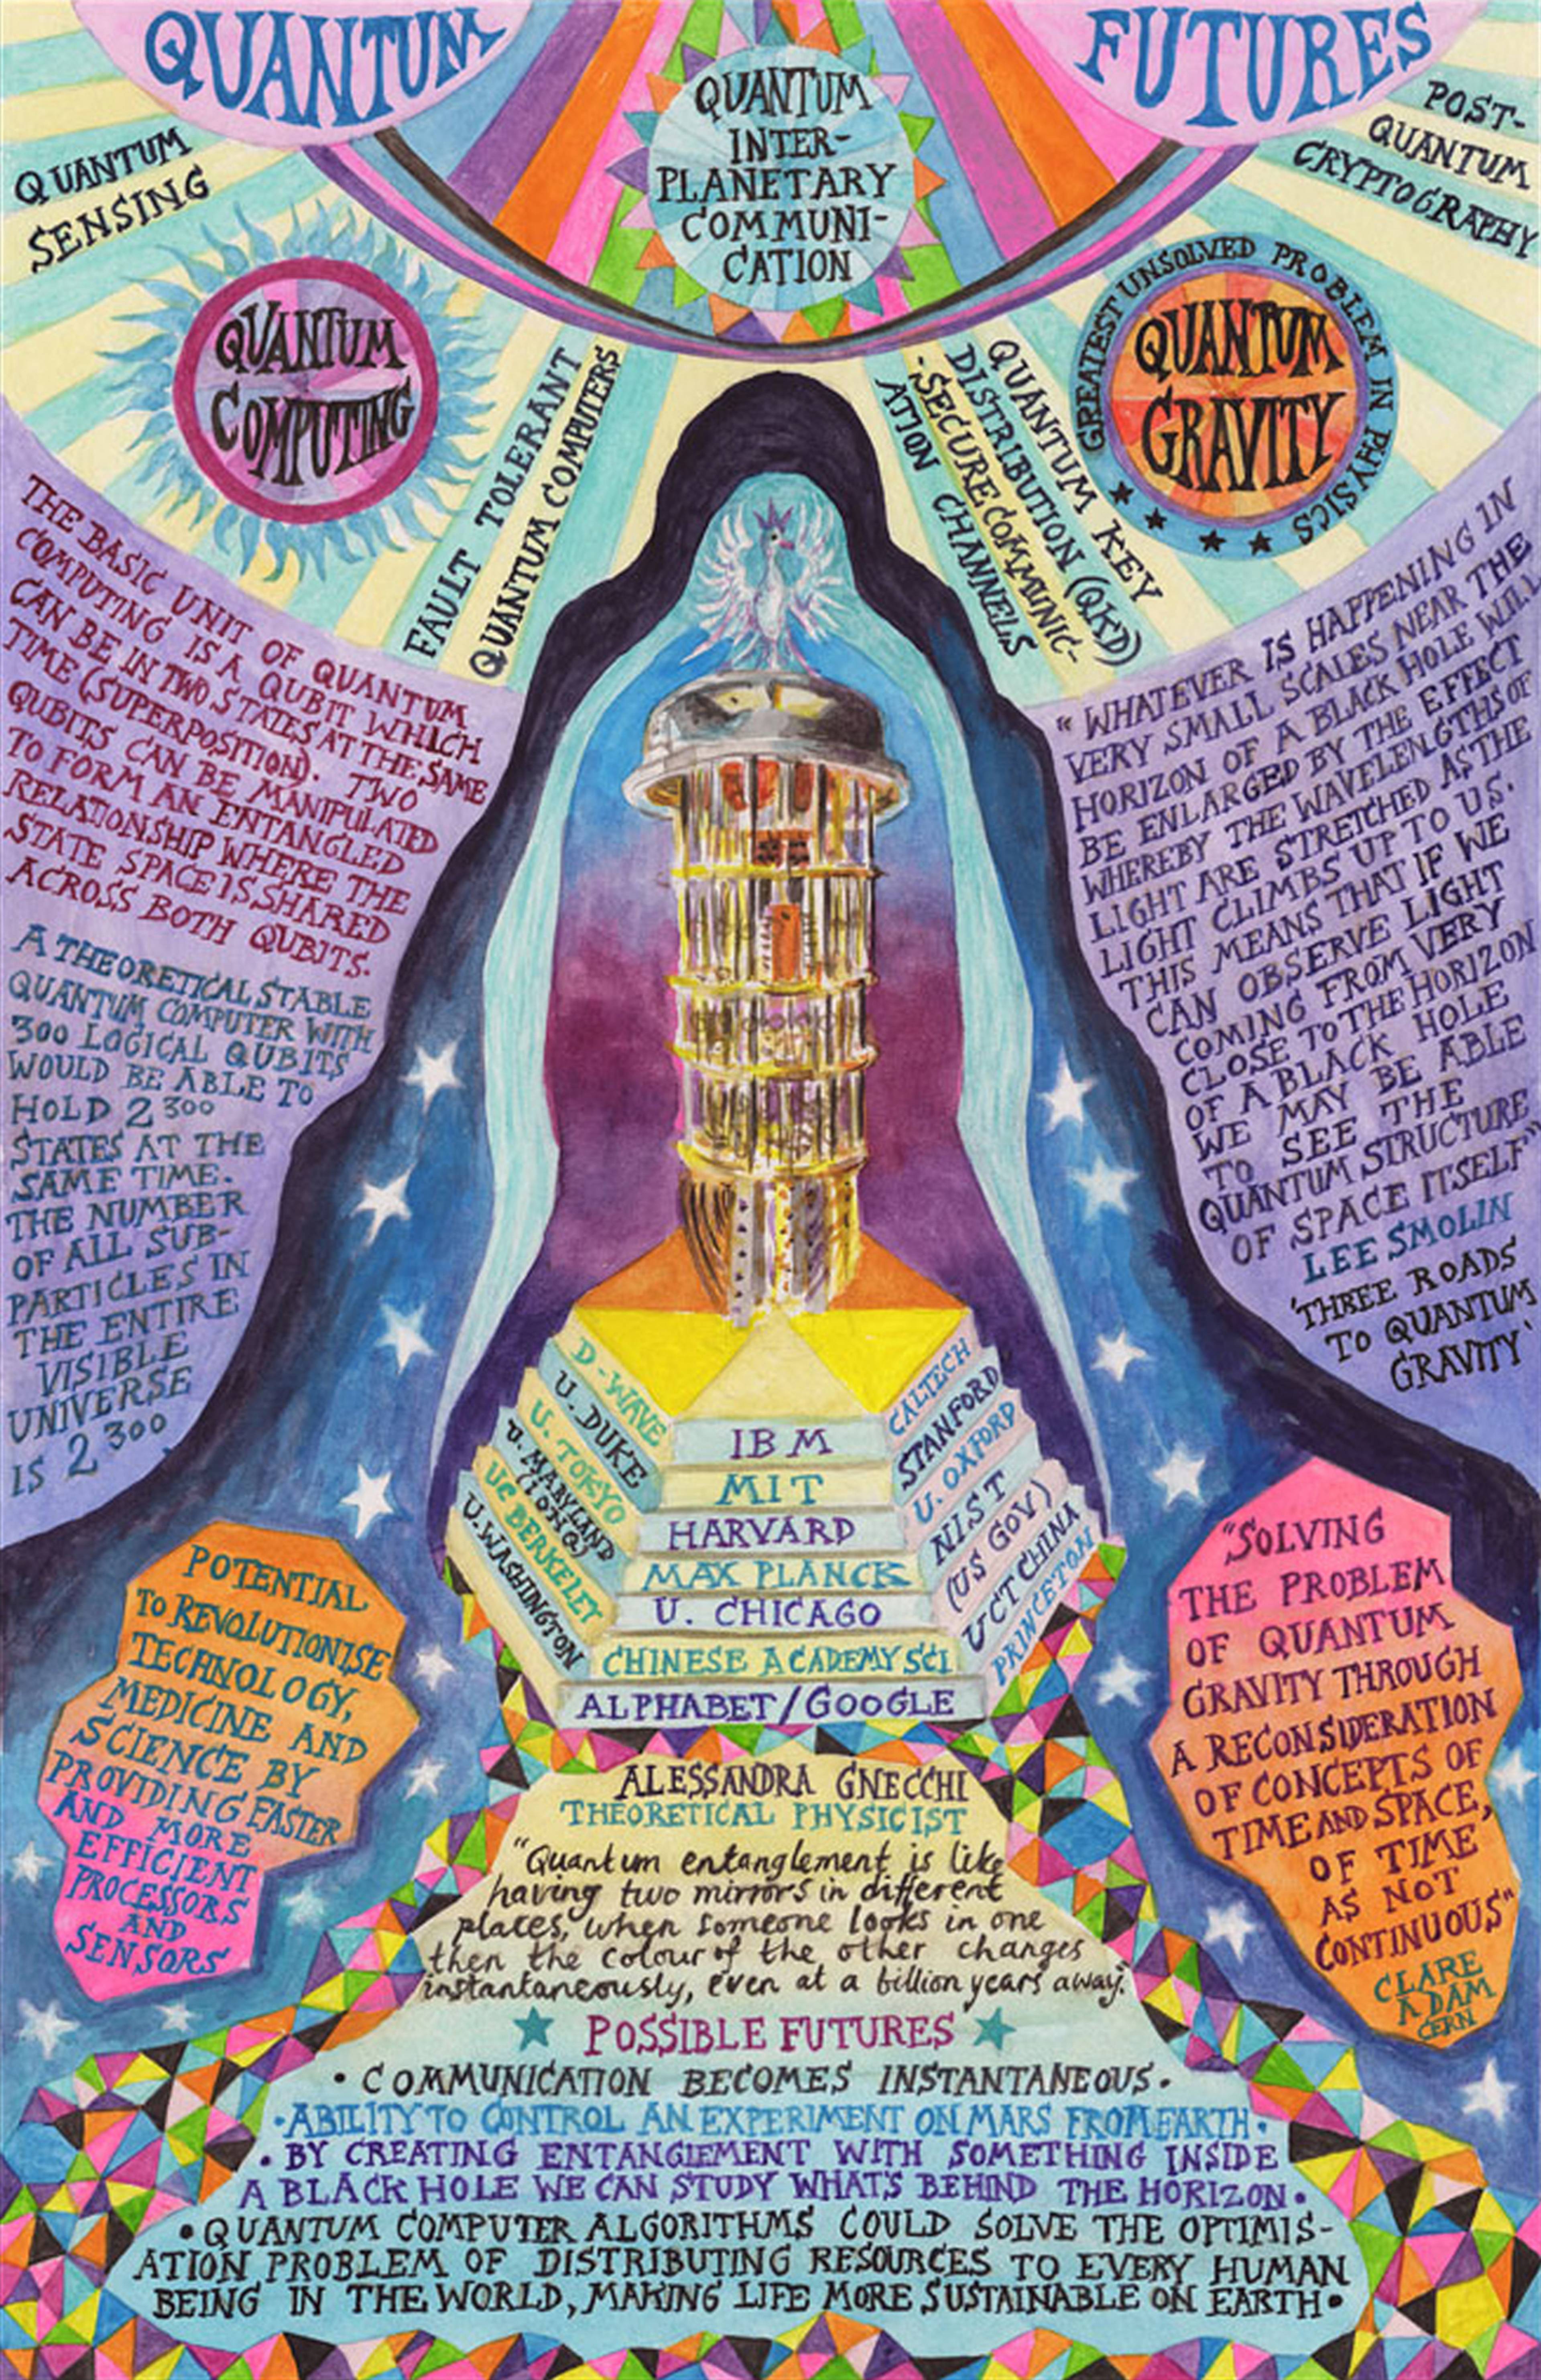 QUANTUM
FUTURES
QUANTUM
INTER-
PLANETARY
COMMUNI-
CATION
QUANTUM
SENSING
POST-
QUANTUM
CRYPTOGRAPHY
QUANTUM
COMPUTING
GREATEST UNSOLVED PROBLEM IN PHYSICS
QUANTUM
GRAVITY
FAULT TOLERANT
QUANTUM COMPUTERS
QUANTUM KEY
DISTRIBUTION (QKD)
-SECURE COMMUNIC-
ATION CHANNELS
THE BASIC UNIT OF QUANTUM
COMPUTING IS A QUBIT WHICH
CAN BE IN TWO STATES AT THE SAME
TIME (SUPERPOSITION). TWO
QUBITS CAN BE MANIPULATED
TO FORM AN ENTANGLED
RELATIONSHIP WHERE THE
STATE SPACE IS SHARED
ACROSS BOTH QUBITS.
A THEORETICAL STABLE
QUANTUM COMPUTER WITH
300 LOGICAL QUBITS
WOULD BE ABLE TO
HOLD 2 300
STATES AT THE
SAME TIME.
THE NUMBER
OF ALL SUB-
PARTICLES IN
THE ENTIRE
VISIBLE
UNIVERSE
IS 2 300
"WHATEVER IS HAPPENING IN
VERY SMALL SCALES NEAR THE
HORIZON OF A BLACK HOLE WILL
BE ENLARGED BY THE EFFECT
WHEREBY THE WAVELENGTHS OF
LIGHT ARE STRETCHED AS THE
LIGHT CLIMBS UP TO US.
THIS MEANS THAT IF WE
CAN OBSERVE LIGHT
COMING FROM VERY
CLOSE TO THE HORIZON
OF A BLACK HOLE
WE MAY BE ABLE
TO SEE THE
QUANTUM STRUCTURE
OF SPACE ITSELF"
LEE SMOLIN
'THREE ROADS
TO QUANTUM
GRAVITY'
D-WAVE
U. DUKE
U. TOKYO
U. MARYLAND
(IONQ)
UC BERKELEY
U. WASHINGTON
IBM
MIT
HARVARD
MAX PLANCK
U. CHICAGO
CHINESE ACADEMY SCI
ALPHABET/GOOGLE
CALTECH
STANFORD
U. OXFORD
NIST
(US GOV)
UCT CHINA
PRINCETON
POTENTIAL
TO REVOLUTIONISE
TECHNOLOGY,
MEDICINE AND
SCIENCE BY
PROVIDING FASTER
AND MORE
EFFICIENT
PROCESSORS
AND
SENSORS
"SOLVING
THE PROBLEM
OF QUANTUM
GRAVITY THROUGH
A RECONSIDERATION
OF CONCEPTS OF
TIME AND SPACE,
OF TIME
AS NOT
CONTINUOUS"
CLARE
ADAM
CERN
ALESSANDRA GNECCHI
THEORETICAL PHYSICIST
"Quantum entanglement is like
having two mirrors in different
places, when someone looks in one
then the colour of the other changes
instantaneously, even at a billion years away."
POSSIBLE FUTURES
• COMMUNICATION BECOMES INSTANTANEOUS •
• ABILITY TO CONTROL AN EXPERIMENT ON MARS FROM EARTH •
• BY CREATING ENTANGLEMENT WITH SOMETHING INSIDE
A BLACK HOLE WE CAN STUDY WHAT'S BEHIND THE HORIZON •
• QUANTUM COMPUTER ALGORITHMS COULD SOLVE THE OPTIMIS-
ATION PROBLEM OF DISTRIBUTING RESOURCES TO EVERY HUMAN
BEING IN THE WORLD, MAKING LIFE MORE SUSTAINABLE ON EARTH •